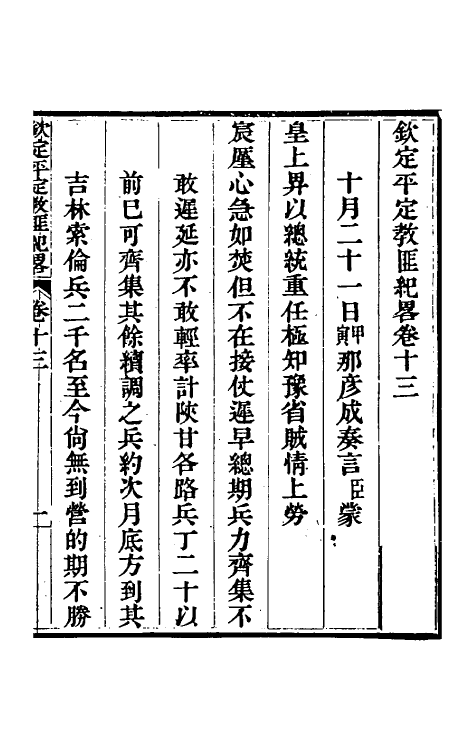 欽定平定教匪紀畧卷十三
十月二十一日甲寅那彥成奏言臣蒙
皇上畀以總統重任極知豫省賊情上勞
宸廑心急如焚但不在接仗遲早總期兵力齊集不
敢遲延亦不敢輕率計陝甘各路兵丁二十以
前已可齊集其餘續調之兵約次月底方到其
吉林索倫兵二千名至今尙無到營的期不勝
欽定平定教匪紀畧 卷十三 一